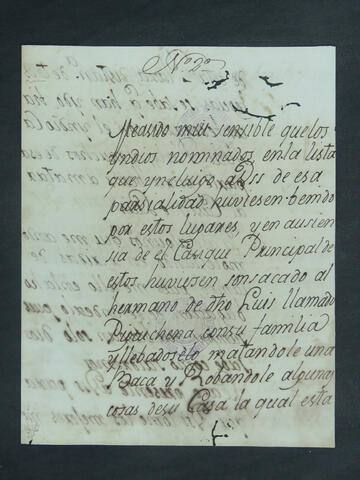 No. 2o
Me a sido mui sensible que los
yndios nominados en la lista
que yncluigo a Uss de esa
parsialidad huviesen benido
por estos lugares, y en ausien
sia de el Casique Principal de
estos huviesen sonsacado al
hermano de dho Luis llamado
con su familia
y llebadoselo matandole una
Baca y Robandole algunas
cosas de su Casa la qual esta